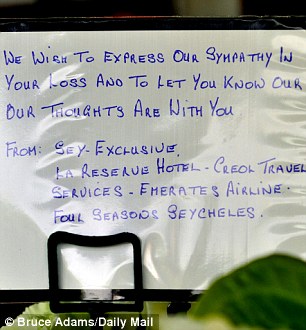 We Wish To Express Our Sympathy In
Your Loss And To Let You Know Our
Our Thoughts Are With You
From: Sey-Exclusive.
La Reserve Hotel - Creol Travel
Services - Emerates Airline.
Four Seasons Seycheles.
© Bruce Adams/Daily Mail